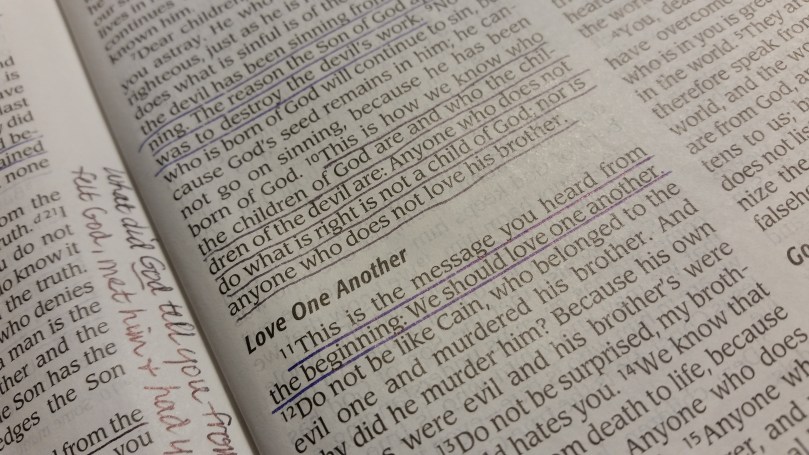 is
ave
last
did
be-
ained
none
om the
ruth.
u do not
o know it
the truth.
who denies
a man is the
ther and the
e Son has the
edges the Son
from the
you
What did God tell you from
felt God, met him + had
continues
lives in
known him
7Dear children
you astray. He who
righteous, just as he is
does what is sinful is of the
the devil has been sinning from
ning. The reason the Son of God
was to destroy the devil's work. 9No
who is born of God will continue to sin, be
cause God's seed remains in him; he can-
not go on sinning, because he has been
born of God. 10This is how we know who
the children of God are and who the chil-
dren of the devil are: Anyone who does not
do what is right is not a child of God, nor is
anyone who does not love his brother.
Love One Another
11This is the message you heard from
the beginning: We should love one another.
12Do not be like Cain, who belonged to the
evil one and murdered his brother. And
hy did he murder him? Because his own
s were evil and his brother's were
13Do not be surprised, my broth-
d hates you. 14We know that
m death to life, because
Anyone who does
15Anyone wh
er, and
heard
the world
4You, dea
have overcome
who is in you is grea
in the world. 5They a
therefore speak from
world, and the wo
are from God,
tens to us;
does not li
nize the
falseh